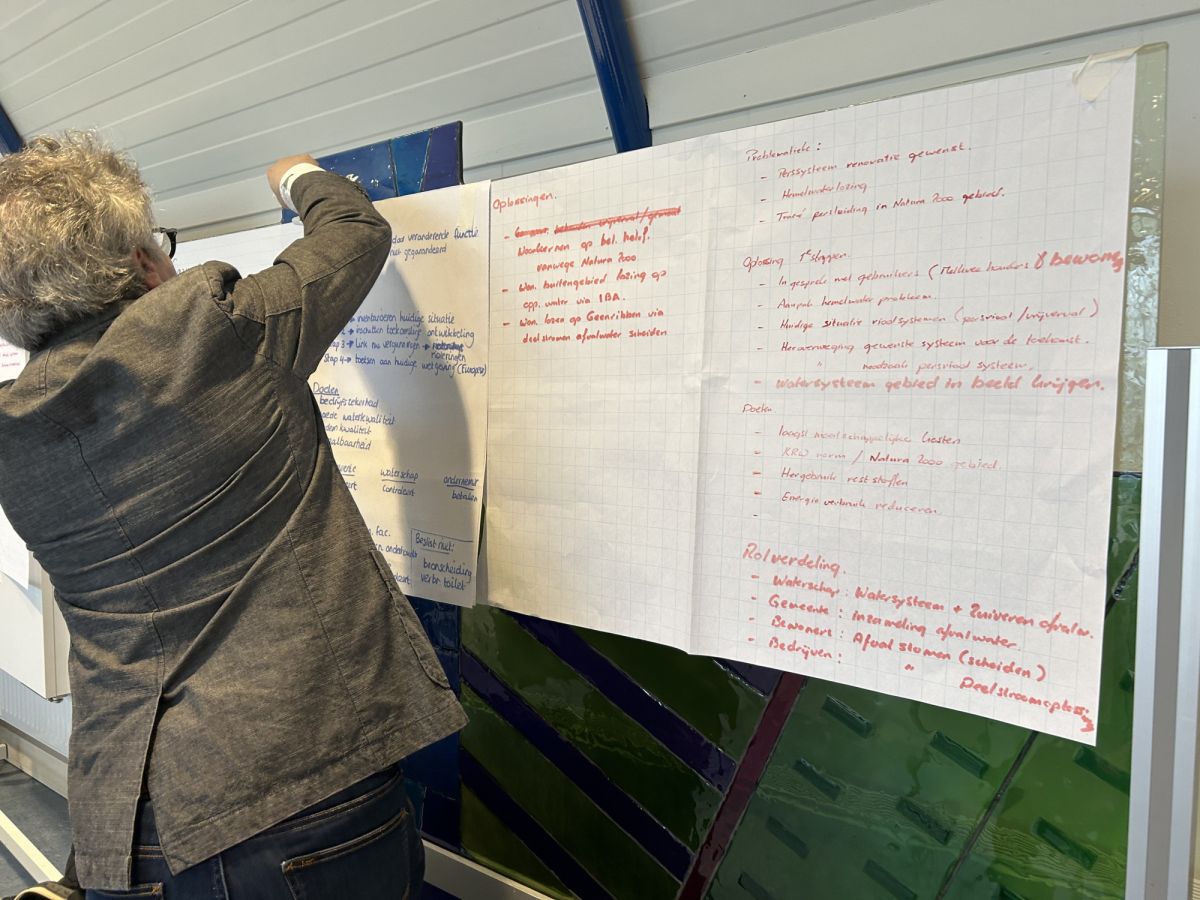 dat veranderende functie
niet gegarandeerd
inventariseren huidige situatie
toekomstige ontwikkeling
stap 3 → Link met vergunningen →
rioleringen
stap 4 → toetsen aan huidige wetgeving (Europese)
Doelen
bedrijfszekerheid
goede waterkwaliteit
kwaliteit
betaalbaarheid
waterschap
ondernemer
controleurt
betalen
fac.
onderhoudt
Beslist niet:
bronscheiding
verbr. toilet
Oplossingen.
- vrijverval / gemaal
Woonkernen op bel. helof.
vanwege Natura 2000
- Won. buitengebied lozing op
opp. water via IBA.
- Won. lozen op Geenribben via
deelstromen afvalwater scheiden
Problematiek:
- Perssysteem renovatie gewenst.
- Hemelwaterlozing
- Tracé persleiding in Natura 2000 gebied.
Oplossing 1e stappen.
- In gesprek met gebruikers (Melkveehouders & bewoners
- Aanpak hemelwater probleem
- Huidige situatie rioolsystemen (persriool / vrijverval)
- Heroverweging gewenste systeem voor de toekomst.
" noodzaak persriool systeem.
- Watersysteem gebied in beeld krijgen.
Doelen
- laagst maatschappelijke kosten
- KRW norm / Natura 2000 gebied.
- Hergebruik reststoffen
- Energie verbruik reduceren.
-
Rolverdeling.
- Waterschap: Watersysteem + Zuiveren afvalw.
- Gemeente: Inzameling afvalwater.
- Bewoners: Afvalstomen (scheiden)
- Bedrijven: "
Deelstroomoplossing